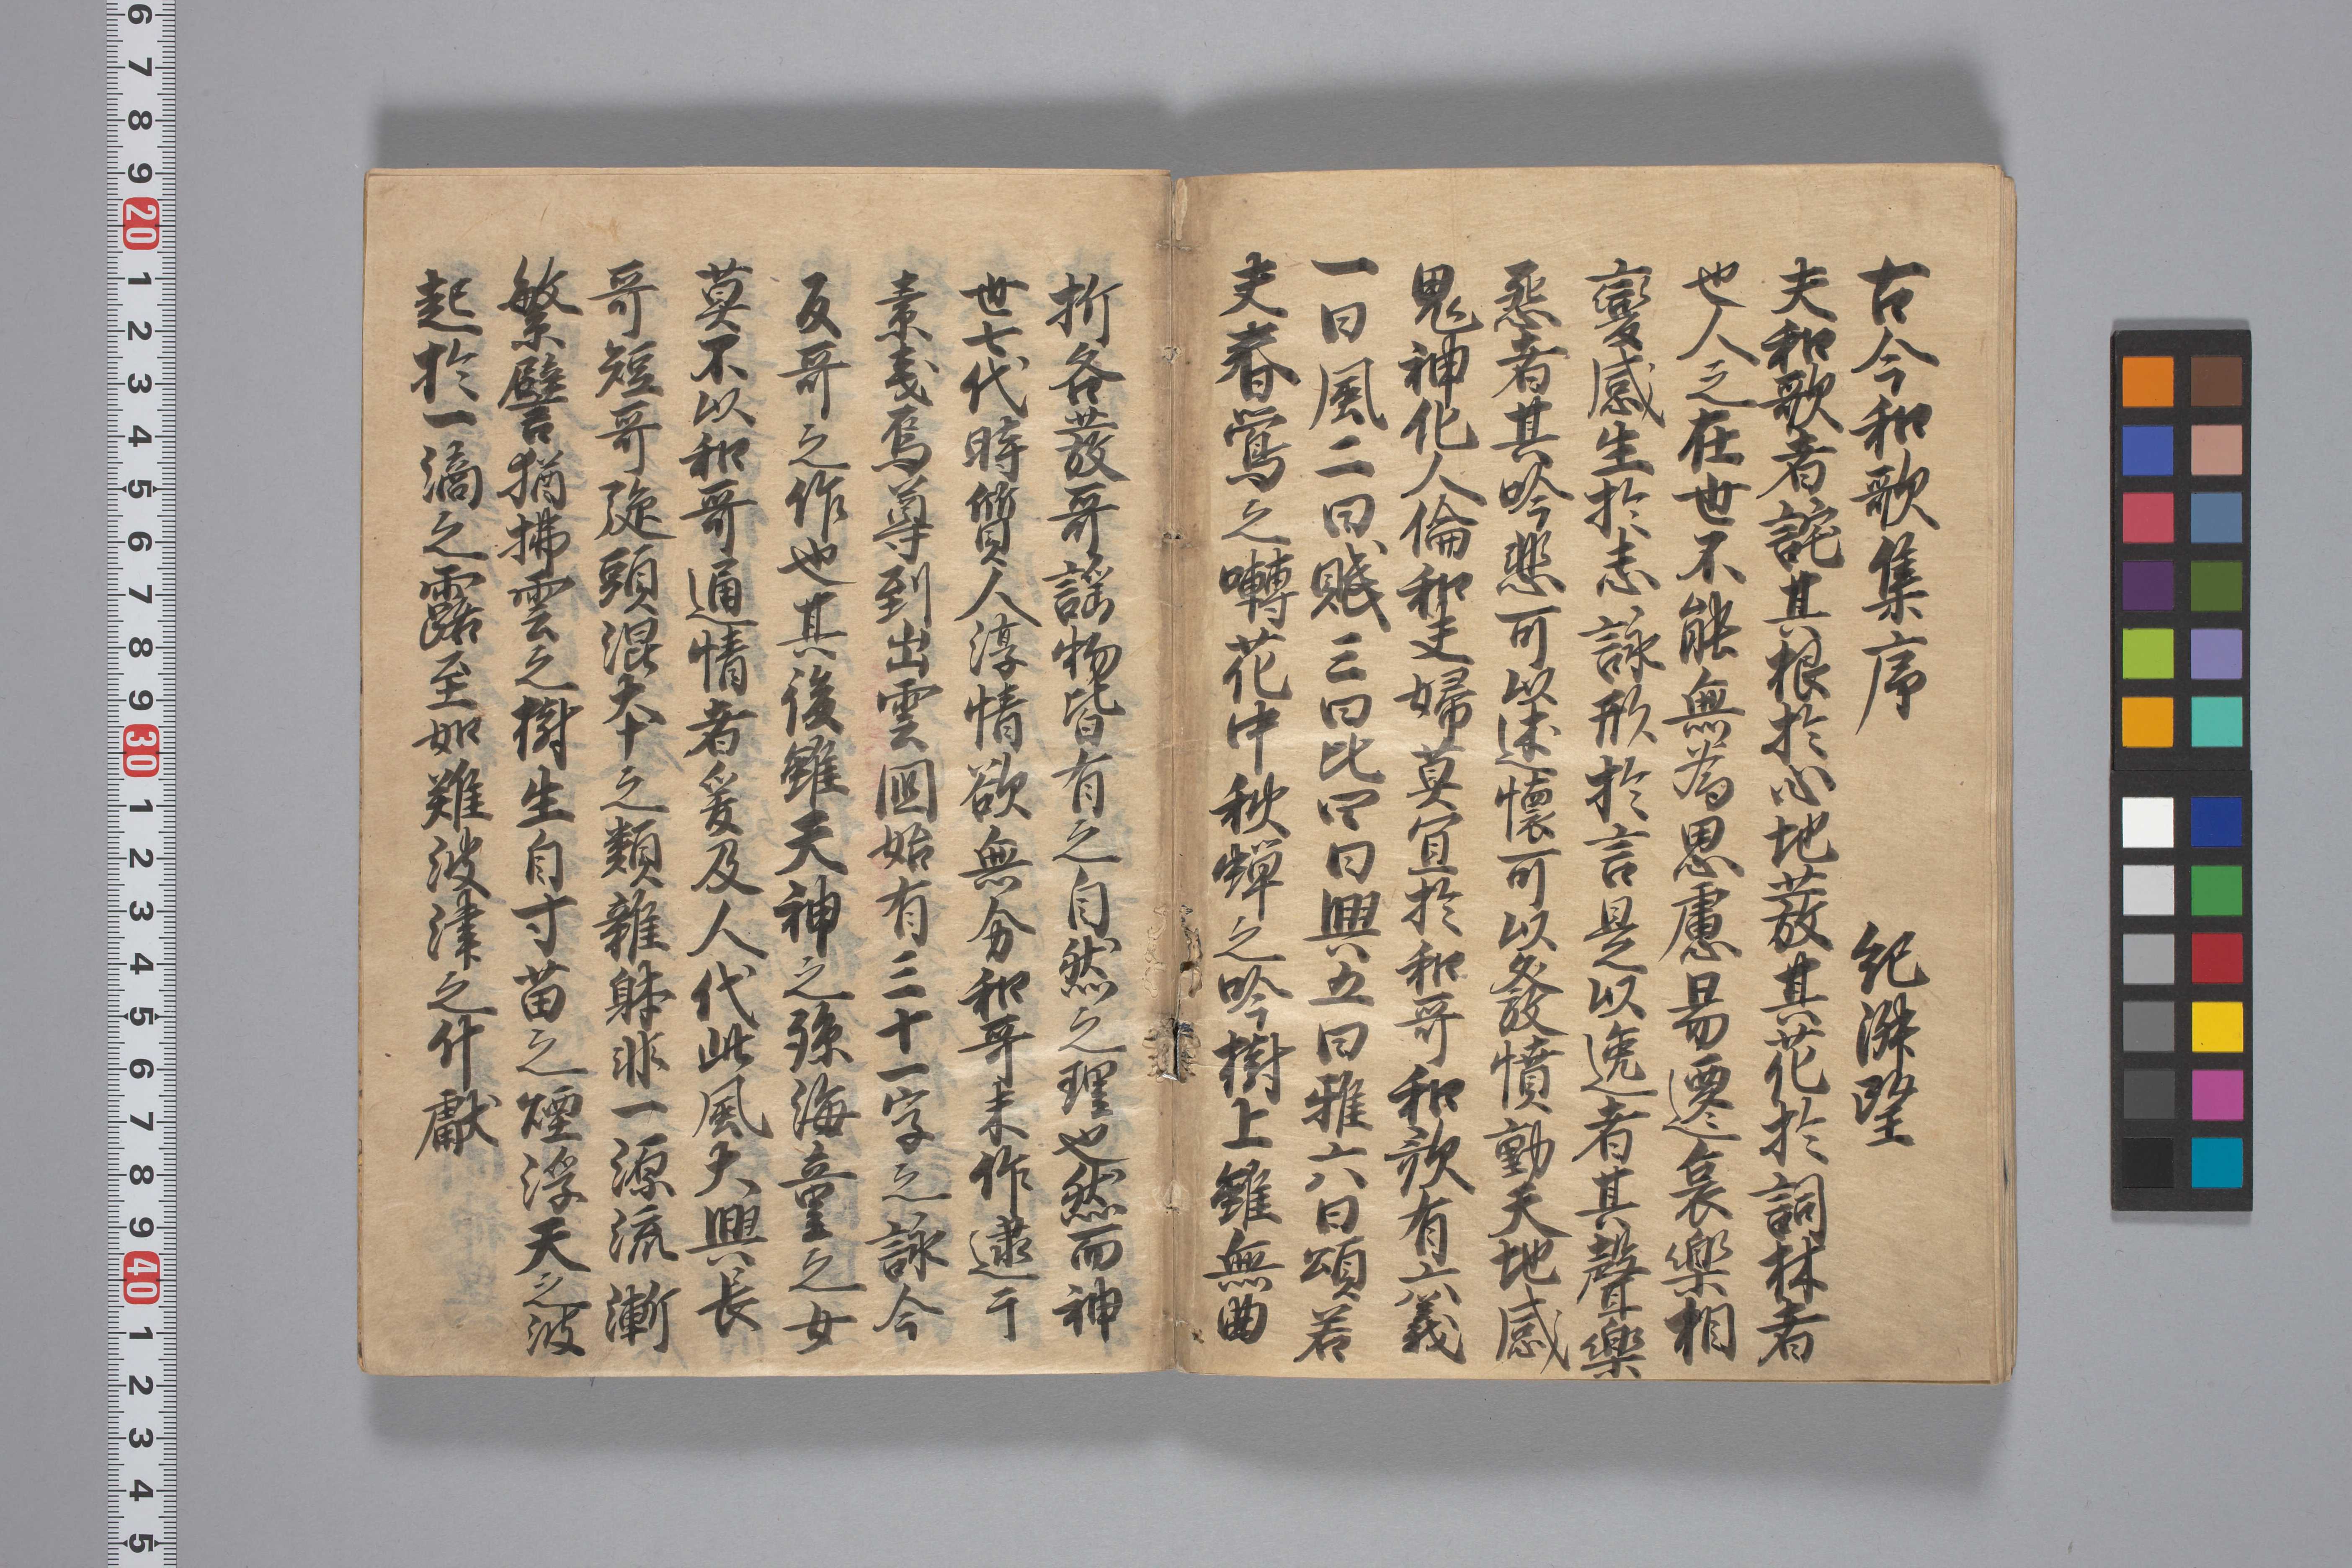 古今和歌集序 紀淑望
夫和歌者託其根於心地發其花於詞林者
也人之在世不能無為思慮易遷哀樂相
變感生於志詠形於言是以逸者其聲樂
怨者其吟悲可以述懷可以發憤動天地感
鬼神化人倫和夫婦莫宜於和哥和歌有六義
一曰風二曰賦三曰比四曰興五曰雅六曰頌若
夫春鶯之囀花中秋蟬之吟樹上雖無曲
折各發哥謡物皆有之自然之理也然而神
世七代時質人淳情欲無分和哥未作逮于
素戔烏尊到出雲國始有三十一字之詠今
反哥之作也其後雖天神之孫海童之女
莫不以和哥通情者爰及人代此風大興長
哥短哥旋頭混夲之類雜躰非一源流漸
繁譬猶拂雲之樹生自寸苗之煙浮天之波
起於一滴之露至如難波津之什獻
6 7 8 9 20 1 2 3 4 5 6 7 8 9 30 1 2 3 4 5 6 7 8 9 40 1 2 3 4 5